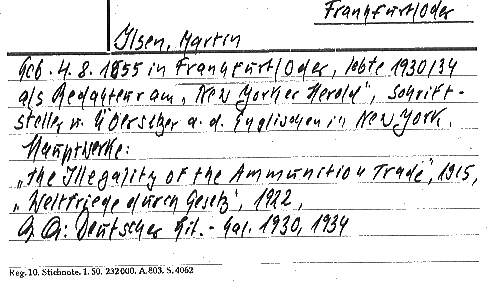 Frankfurt/Oder
Ilsen, Martin
Geb. 4.8.1855 in Frankfurt/Oder, lebte 1930/34
als Redakteur am „New Yorker Herold", Schrift-
steller u. Übersetzer a. d. Englischen in New York.
Hauptwerke:
„The Illegality of the Ammunition Trade", 1915,
„Weltfriede durch Gesetz", 1922,
Qu: Deutscher Lit.-Kal. 1930, 1934
Reg. 10. Stichnote. 1. 50. 232000. A. 803. S. 4062